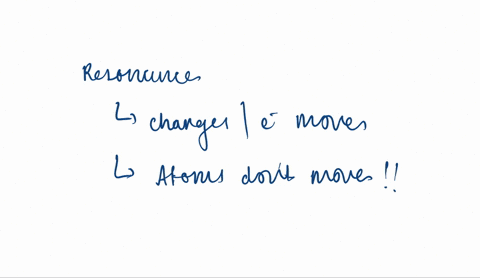 Resonance
↳ changes | e⁻ moves
↳ Atoms don't moves !!